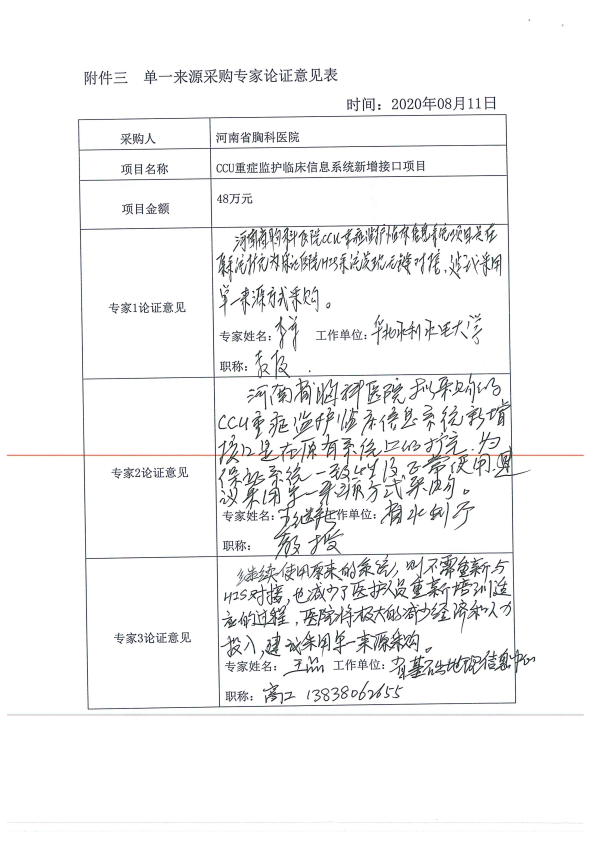 附件三 单一来源采购专家论证意见表
时间：2020年08月11日
采购人 河南省胸科医院
项目名称 CCU重症监护临床信息系统新增接口项目
项目金额 48万元
专家1论证意见
河南省胸科医院CCU重症监护临床信息系统项目是在
原系统扩充为保证医院HIS系统实现无缝对接，建议采用
单一来源方式采购。
专家姓名： 工作单位：华北水利水电大学
职称：教授.
专家2论证意见
河南省胸科医院拟采购的
CCU重症监护临床信息系统新增
接口是在原有系统上的扩充，为
保证系统一致性及正常使用，建
议采用单一来源方式采购。
专家姓名： 工作单位：省水利厅
职称：教授
专家3论证意见
继续使用原来的系统，则不需重新与
HIS对接，也减少了医护人员重新培训适
应的过程，医院将极大的减少经济和人力
投入，建议采用单一来源采购。
专家姓名：王 工作单位：省基础地理信息中心
职称：高工 13838062655